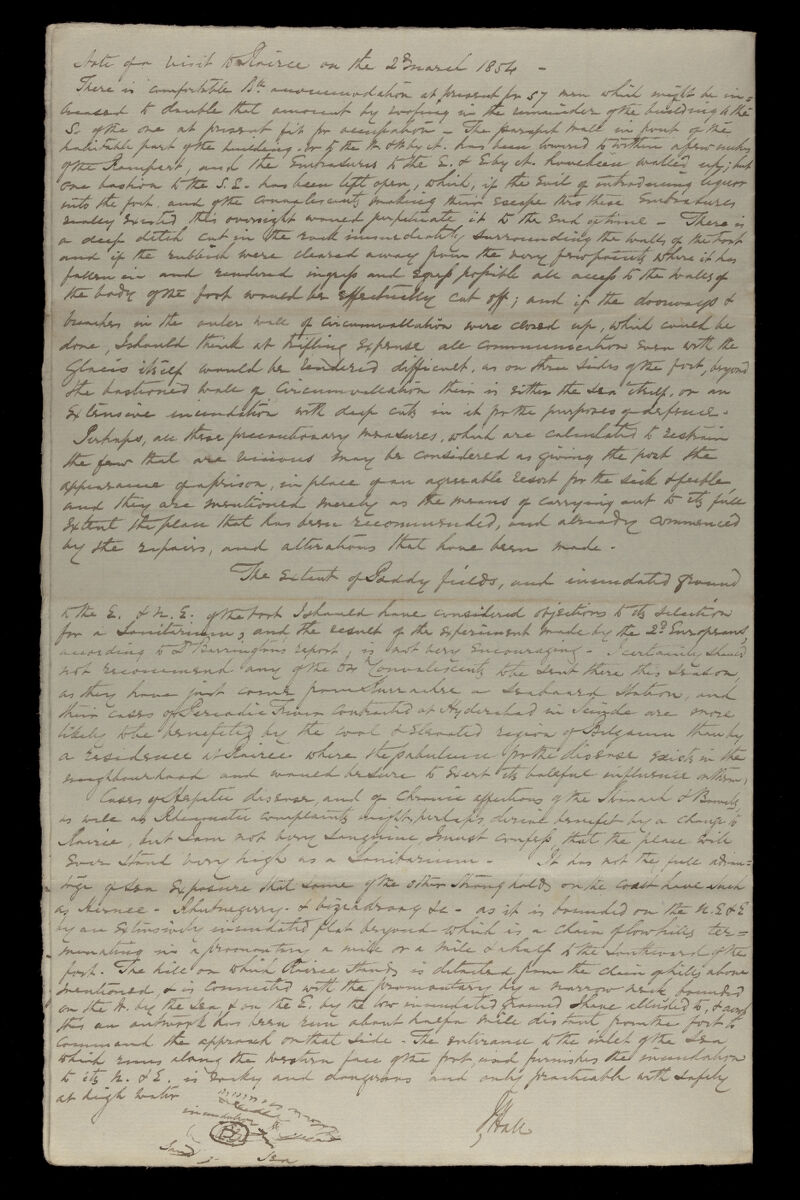 Note of a Visit to Rairee on the 2d March 1854 -
There is comfortable Bk accommodation at present for 57 men which might be in=
creased to double that amount by roofing in the remainder of the building to the
S. of the one at present fit for occupation - The parapet wall in front of the
habitable part of the building - or to the W. & W by N. has been lowered to within a few inches
of the Rampart, and the Embrasures to the E. & E by N. have been walled up; but
one bastion to the S.E. has been left open, which, if the Evil of introducing liquor
into the fort and of the convalescents making their escape thro these Embrasures
really existed this oversight would perpetuate it to the End of time - There is
a deep ditch cut in the rock immediately surrounding the walls of the fort
and if the rubbish were cleared away from the very few points where it has
fallen in and rendered ingress and Egress possible all access to the walls of
the body of the fort would be effectually cut off; and if the doorways &
breaches in the outer wall of circumvallation were closed up, which could be
done, I should think at trifling Expense all communication even with the
Glacis itself would be rendered difficult, as on three sides of the fort, beyond
the bastioned wall of Circumvallation there is either the Sea itself, or an
Extensive inundation with deep cuts in it for the purposes of defence -
Perhaps, all these precautionary measures, which are calculated to restrain
the few that are vicious may be considered as giving the post the
appearance of a prison, in place of an agreeable resort for the sick & feeble
and they are mentioned merely as the means of carrying out to its full
Extent the plan that has been recommended, and already commenced
by the repairs, and alterations that have been made -
The Extent of Paddy fields, and inundated ground
to the E. & N.E. of the fort I should have considered objections to its selection
for a Sanitarium, and the result of the experiment made by the 2d Europeans,
according to Dr Barrington's report, is not very Encouraging - I certainly should
not recommend any of the Convalescents to be sent there this Season,
as they have just come from Kurrachee a Seaboard Station, and
their cases of Periodic Fever contracted at Hyderabad in Scinde are more
likely to be benefited by the cool & Elevated region of Belgaum than by
a residence at Rairee where the pabulum for the disease exists in the
neighbourhood and would be sure to exert its baleful influence on them,
Cases of Hepatic disease, and of Chronic affections of the Stomach & Bowels,
as well as Rheumatic complaints might perhaps derive benefit by a change to
Rairee, but I am not very sanguine I must confess, that the place will
Ever stand very high as a Sanitarium - It has not the full advan=
tage of Sea Exposure that some of the other Strongholds on the coast have such
as Hernee - Rhutnagerry - & Vizeadroog &c - as it is bounded on the N. E & E
by an Extensively inundated flat beyond which is a chain of low hills ter=
minating in a promontory a mile or a mile & a half to the Southward of the
fort. The hill on which Rairee stands is detached from the chain of hills above
mentioned & is connected with the promontory by a narrow neck bounded
on the W. by the Sea & on the E. by the low inundated ground I have alluded to, & across
this an outwork has been run about half a mile distant from the fort to
command the approach on that side - The entrance to the inlet of the Sea
which runs along the Western face of the fort, and furnishes the inundation
to its N. & E. is rocky and dangerous and only practicable with safety
at high water
inundation
Sea
J Hall